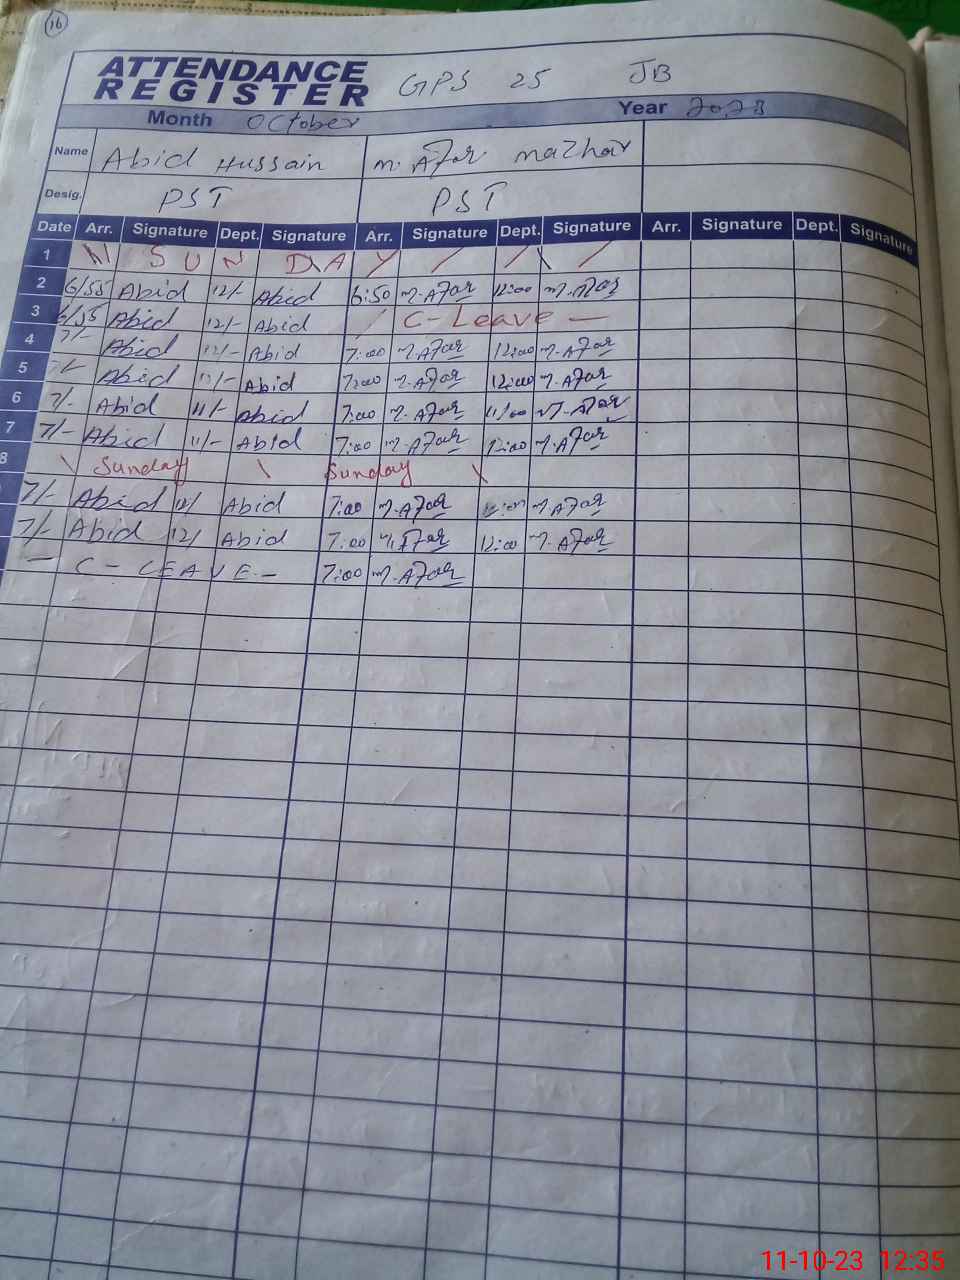 16
ATTENDANCE REGISTER GPS 25 JB
Month October Year 2023
Name Abid Hussain M. Afar Mazhar
Desig. PST PST
Date Arr. Signature Dept. Signature Arr. Signature Dept. Signature Arr. Signature Dept. Signature
1 SUNDAY
2 6/55 Abid 12/- Abid 6:50 M.Afar 12:00 M.Afar
3 6/55 Abid 12/- Abid C-Leave -
4 7/- Abid 12/- Abid 7:00 M.Afar 12:00 M.Afar
5 7/- Abid 12/- Abid 7:00 M.Afar 12:00 M.Afar
6 7/- Abid 11/- Abid 7:00 M.Afar 11/00 M.Afar
7 7/- Abid 11/- Abid 7:00 M.Afar 12:00 M.Afar
8 Sunday Sunday
7/- Abid 12/ Abid 7:00 M.Afar M.Afar
7/- Abid 12/ Abid 7:00 M.Afar 12:00 M.Afar
- C - LEAVE - 7:00 M.Afar
11-10-23 12:35